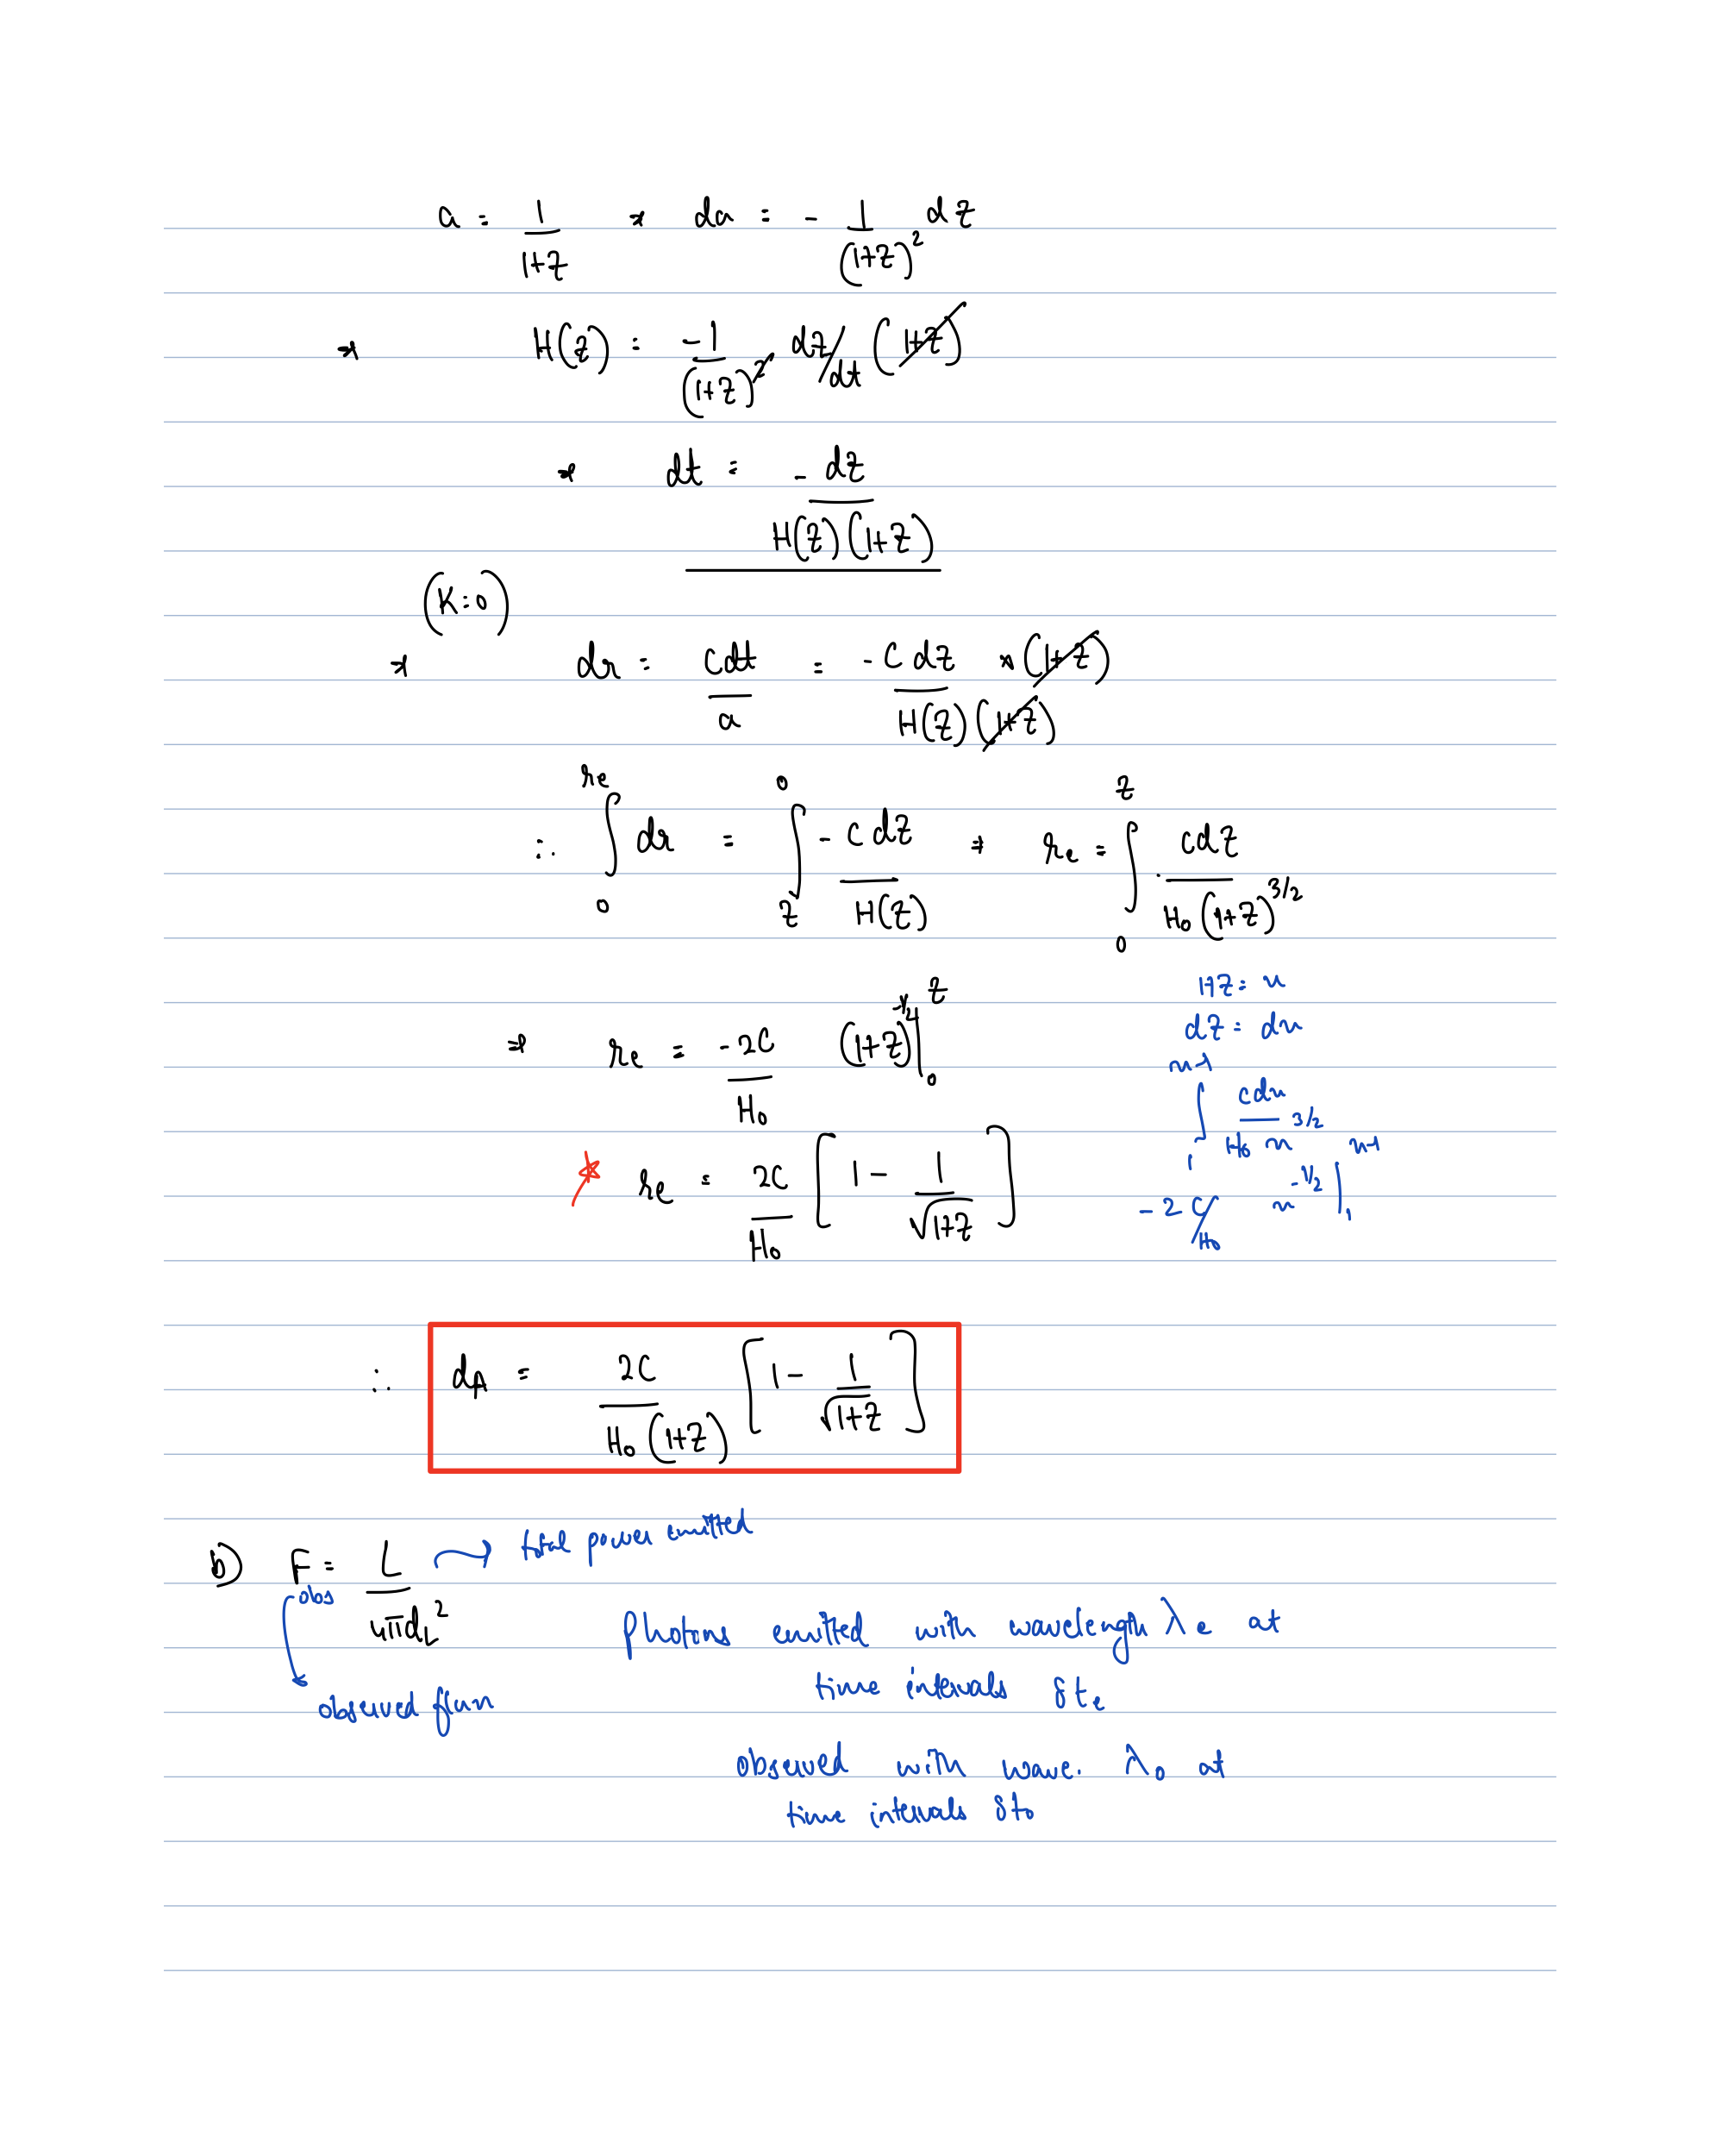 a = 1/(1+z) ⇒ da = - 1/(1+z)² dz
⇒ H(z) = -1/(1+z)² dz/dt (1+z)
⇒ dt = - dz/(H(z)(1+z))
(K=0)
⇒ dr = cdt/a = -c dz/(H(z)(1+z)) × (1+z)
∴ ∫₀^{re} dr = ∫_z^0 -c dz/H(z) ⇒ re = ∫₀^z cdz/(H₀(1+z)^{3/2})
1+z = u
dz = du
⇒ re = -2c/H₀ (1+z)^{-1/2} |₀^z
∫₁ cdu/(H₀ u^{3/2})
re = 2c/H₀ [1 - 1/√(1+z)]
-2c/H₀ u^{-1/2} |₁
∴ dA = 2c/(H₀(1+z)) [1 - 1/√(1+z)]
b) F_obs = L/(4πd_L²) → total power emitted
Photons emitted with wavelength λe at
time intervals δte
observed flux
observed with wave. λ₀ at
time intervals δt₀